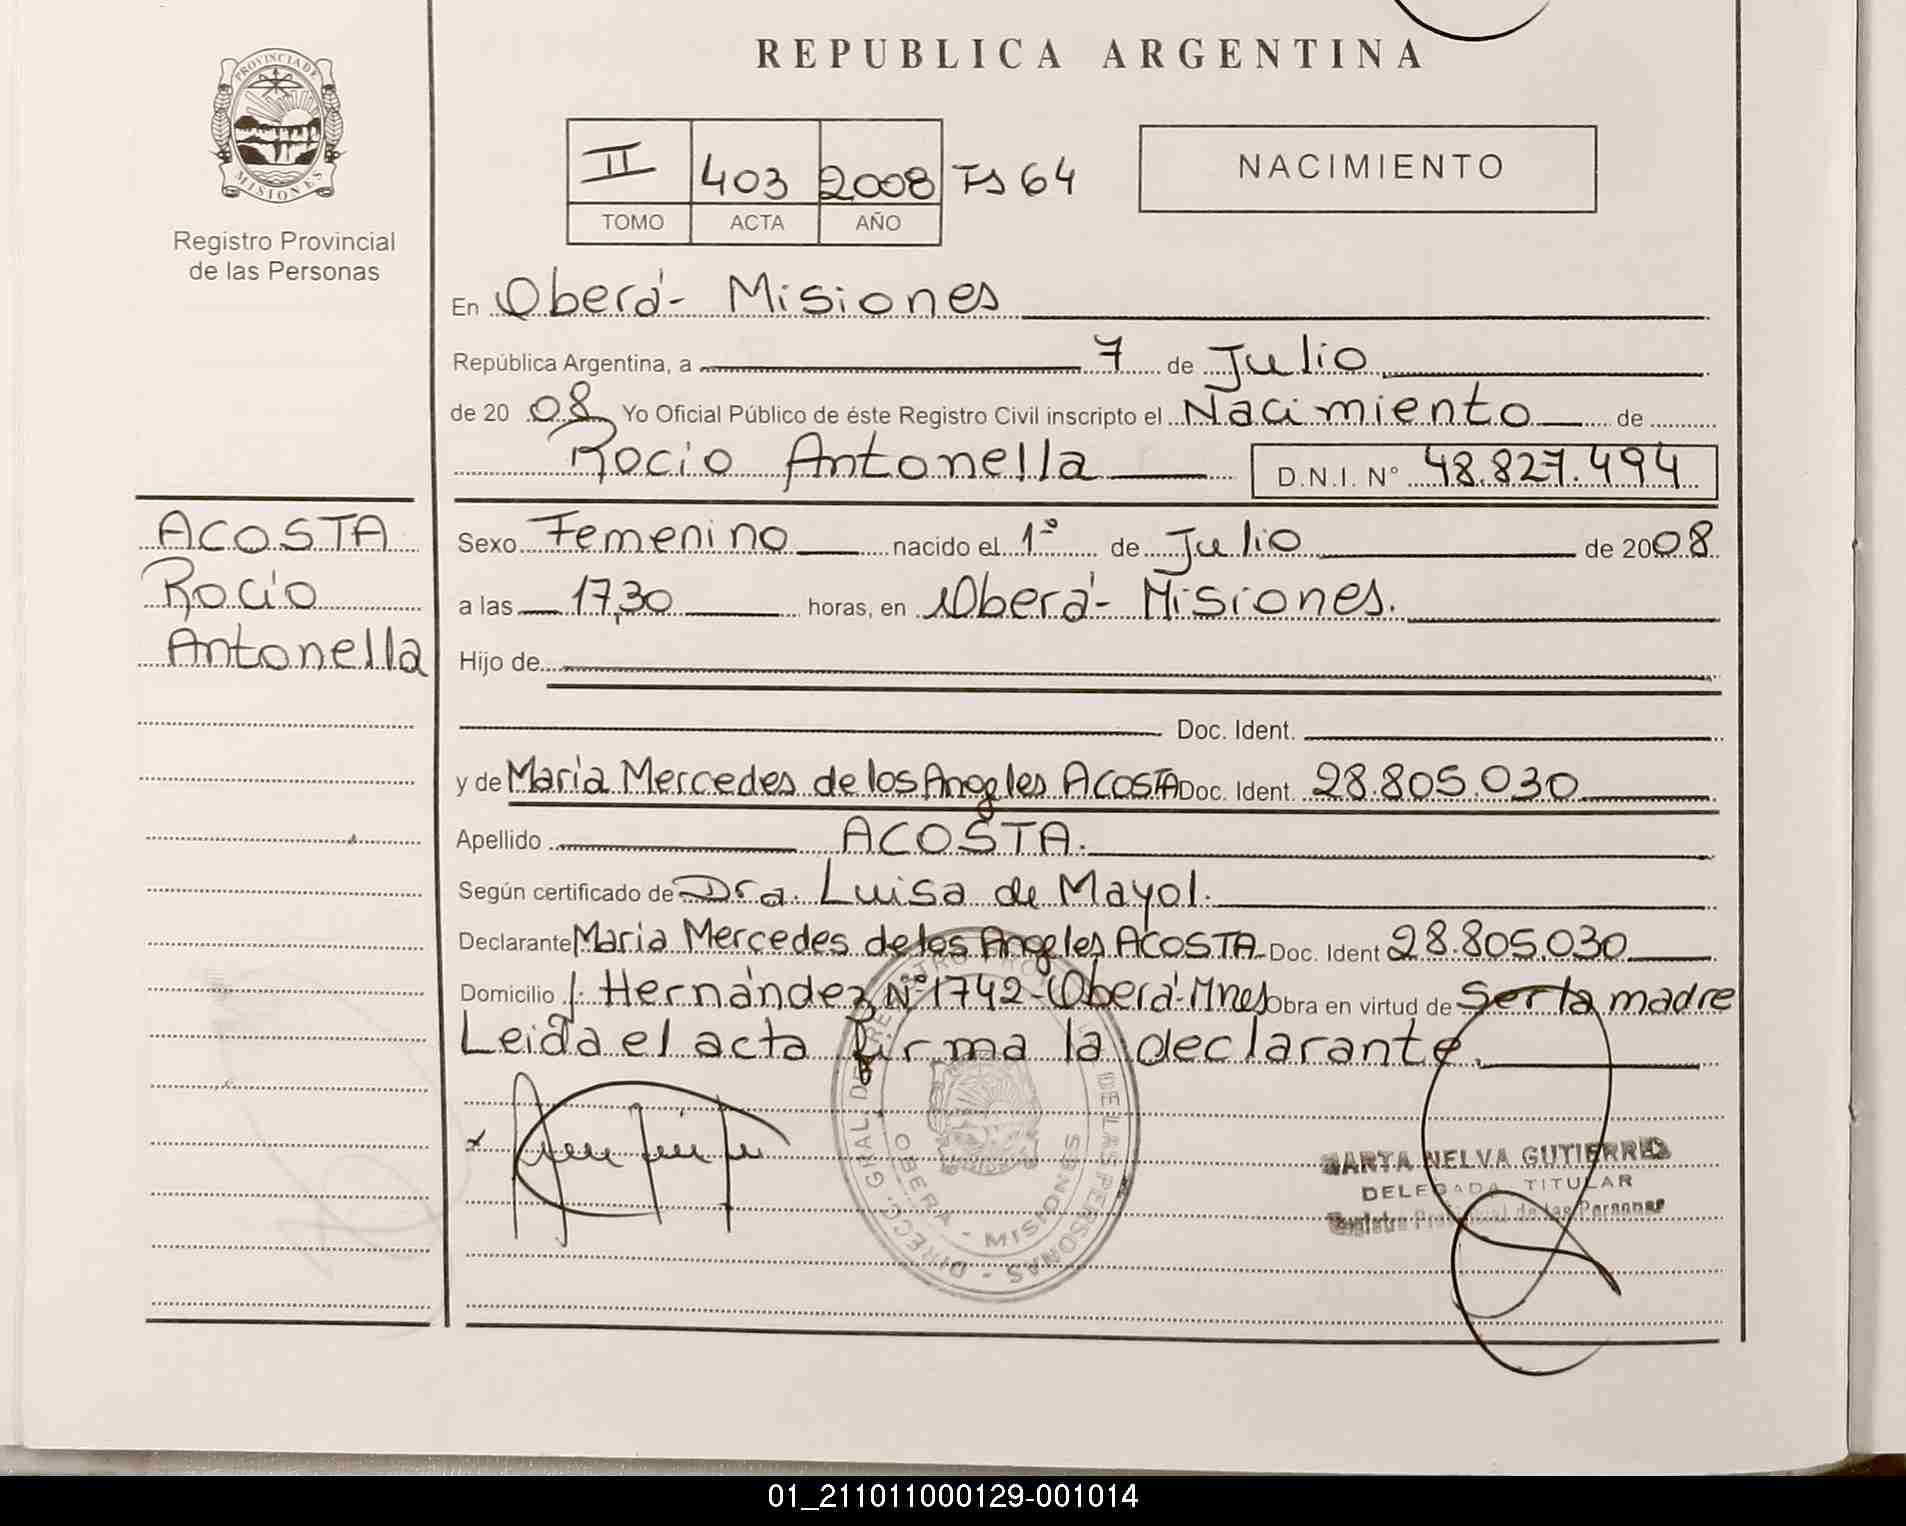 REPUBLICA ARGENTINA
PROVINCIA DE
MISIONES
Registro Provincial
de las Personas
II 403 2008 Fs 64
TOMO ACTA AÑO
NACIMIENTO
En Oberá - Misiones
República Argentina, a 7 de Julio
de 2008 Yo Oficial Público de éste Registro Civil inscripto el Nacimiento de
Rocio Antonella D.N.I. N° 48.827.494
ACOSTA
Rocío
Antonella
Sexo Femenino nacido el 1º de Julio de 2008
a las 17,30 horas, en Oberá - Misiones.
Hijo de
Doc. Ident.
y de Maria Mercedes de los Angeles ACOSTA Doc. Ident. 28.805.030
Apellido ACOSTA.
Según certificado de Dra. Luisa de Mayol.
Declarante Maria Mercedes de los Angeles ACOSTA Doc. Ident 28.805.030
Domicilio J. Hernández Nº 1742 - Oberá - Mnes Obra en virtud de Ser la madre
Leida el acta firma la declarante.
DIRECC. GRAL. DE REGISTRO DE LAS PERSONAS
OBERA - MISIONES
MARTA NELVA GUTIERREZ
DELEGADA TITULAR
Registro Provincial de las Personas
01_211011000129-001014